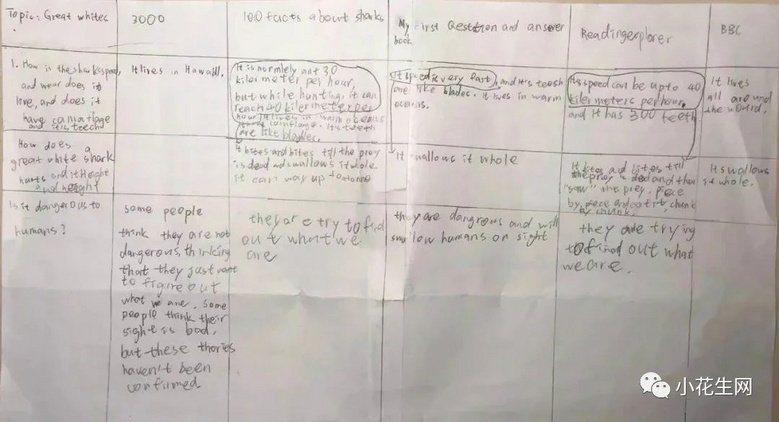 Topic: Great white
3000
100 facts about sharks
My First Qestion and answer
book
Readingexplorer
BBC
1. How is the shark speed,
and wear does it
live, and does it
have camaflage
and it's teech
It lives in Hawaill.
It is normlely ant 30
kilermeter per hour,
but while hunting, it can
reach 40 kilermeter per
hour It lives in warm oceans
It's teeth
are like blades.
It speed is very fast, and it's teeth
are like blades. It lives in warm
oceans.
It's speed can be up to 40
kilermeters per hour
and it has 300 teeth
It lives
all around
the world.
How does a
great white shark
hunts and it Height
and weight
It bites and bites till the prey
is dead and swallows it whole
it can way up to
It swallows it whole
It bites and bites till
the prey is ded and then
"saw" the prey. Piece
by piece chunk
by chunk.
It swallows
it whole.
Is it dangerous to
humans?
some people
think they are not
dangerous, thinking
that they just want
to figure out
what we are. Some
people think their
sight is bad.
but these thories
haven't been
confirmed
they are try to find
out what we
are
they are dangrous and will
swo low humans on sight
they are trying
to find out what
we are.
小花生网